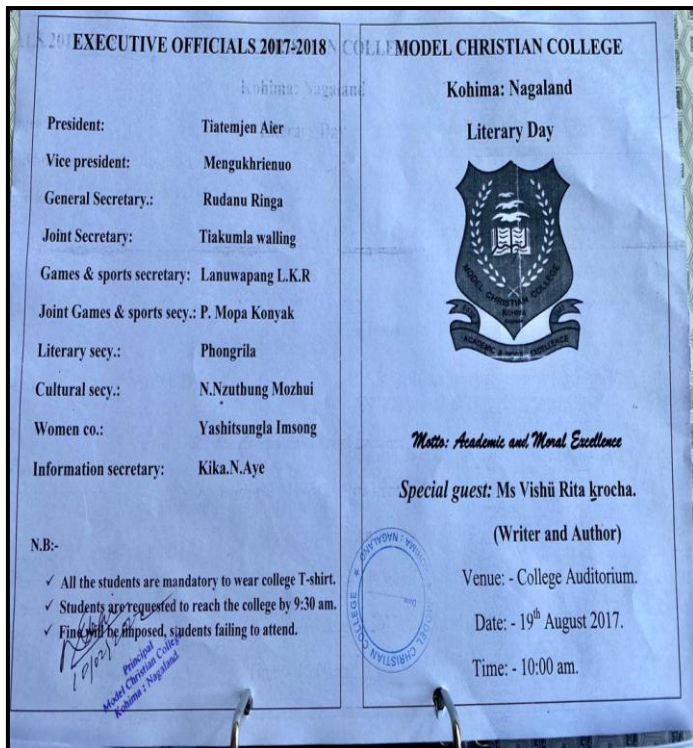 EXECUTIVE OFFICIALS 2017-2018
President: Tiatemjen Aier
Vice president: Mengukhrienuo
General Secretary.: Rudanu Ringa
Joint Secretary: Tiakumla walling
Games & sports secretary: Lanuwapang L.K.R
Joint Games & sports secy.: P. Mopa Konyak
Literary secy.: Phongrila
Cultural secy.: N.Nzuthung Mozhui
Women co.: Yashitsungla Imsong
Information secretary: Kika.N.Aye
N.B:-
✓ All the students are mandatory to wear college T-shirt.
✓ Students are requested to reach the college by 9:30 am.
✓ Fine will be imposed, students failing to attend.
Principal
Model Christian College
Kohima : Nagaland
MODEL CHRISTIAN COLLEGE
Kohima: Nagaland
Literary Day
MODEL CHRISTIAN COLLEGE
KOHIMA
ACADEMIC & MORAL EXCELLENCE
Motto: Academic and Moral Excellence
Special guest: Ms Vishü Rita krocha.
(Writer and Author)
Venue: - College Auditorium.
Date: - 19th August 2017.
Time: - 10:00 am.
MODEL CHRISTIAN
KOHIMA : NAGALAND
Date